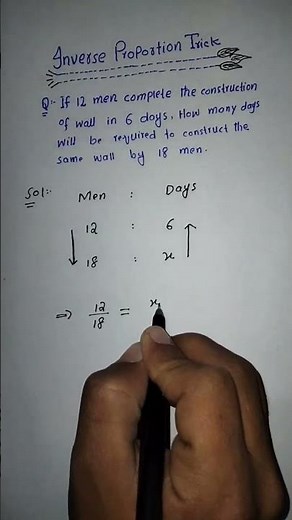 Inverse Proportion Trick
Q:- If 12 men complete the construction
of wall in 6 days, How many days
will be required to construct the
same wall by 18 men.
Sol:- Men : Days
12 : 6
18 : x
⇒ 12/18 = x